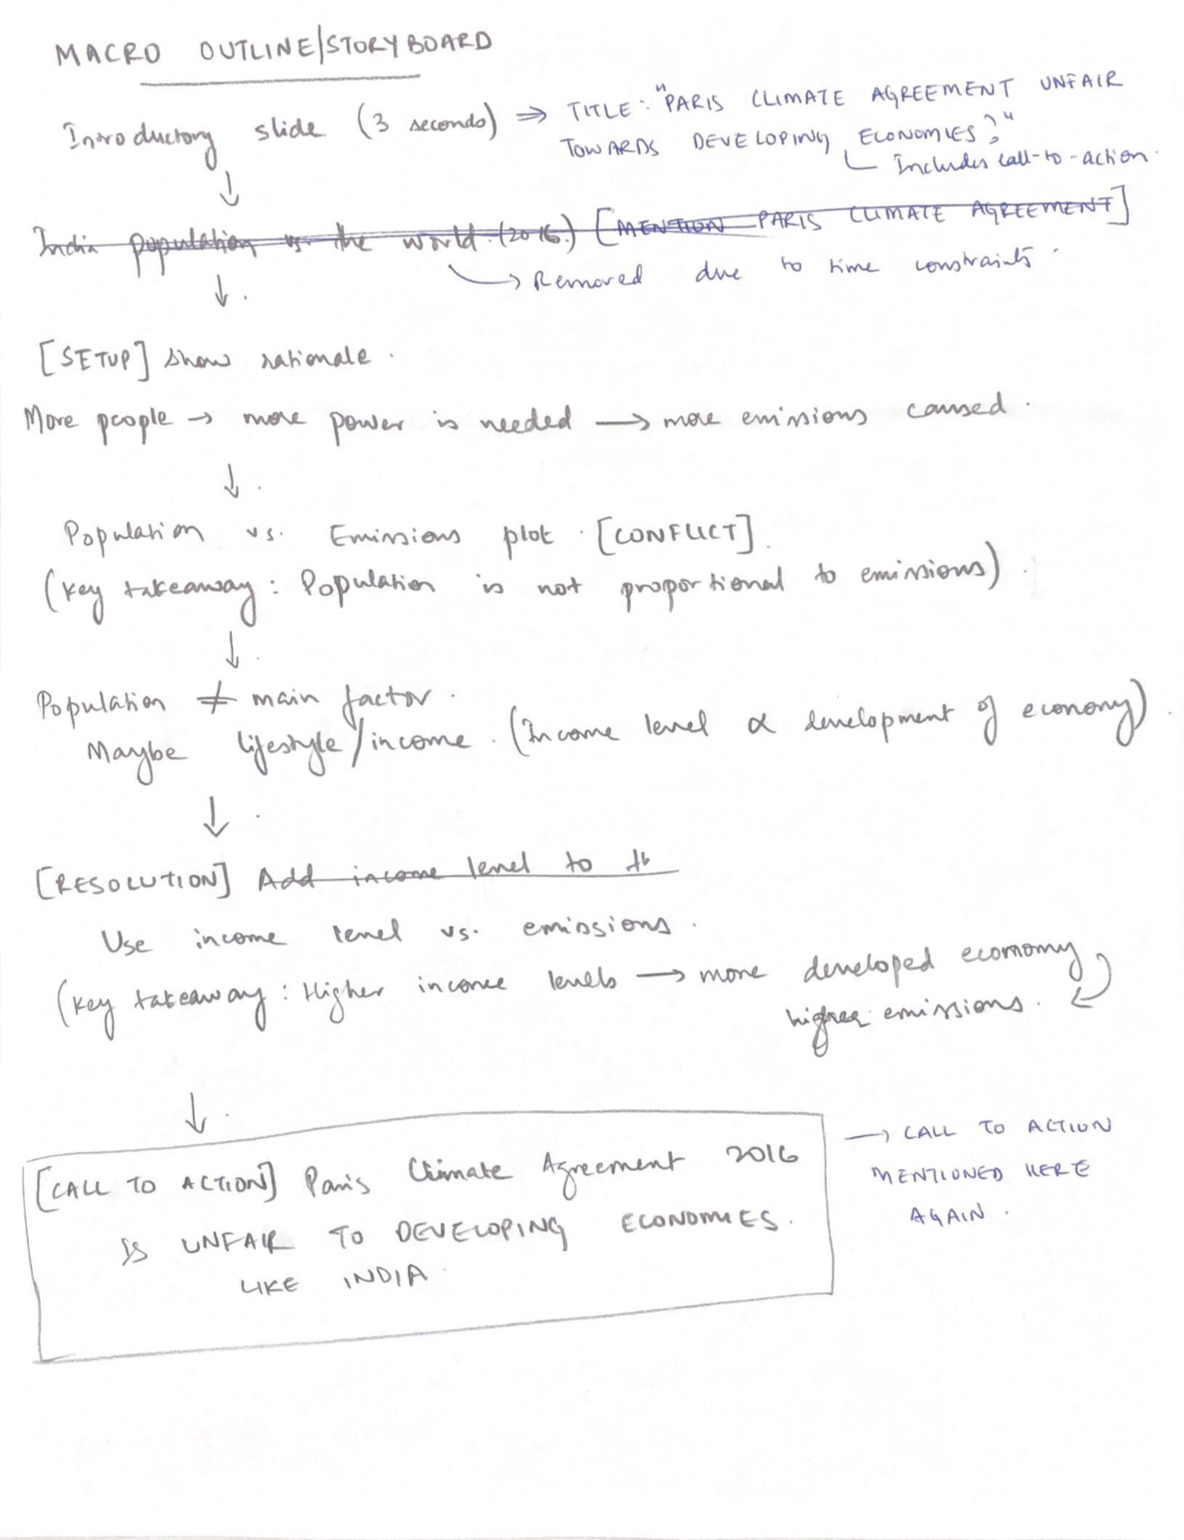 MACRO OUTLINE/STORYBOARD
Introductory slide (3 seconds) ⇒ TITLE: "PARIS CLIMATE AGREEMENT UNFAIR
TOWARDS DEVELOPING ECONOMIES?"
Includes call-to-action.
↓
India population vs the world. (2016.) [MENTION PARIS CLIMATE AGREEMENT]
→ Removed due to time constraints.
↓.
[SETUP] Show rationale.
More people → more power is needed → more emissions caused.
↓.
Population vs. Emissions plot. [CONFLICT].
(Key takeaway: Population is not proportional to emissions).
↓.
Population ≠ main factor.
Maybe lifestyle/income. (Income level ∝ development of economy).
↓.
[RESOLUTION] Add income level to th
Use income level vs. emissions.
(Key takeaway: Higher income levels → more developed economy
higher emissions.
↓.
[CALL TO ACTION] Paris Climate Agreement 2016
IS UNFAIR TO DEVELOPING ECONOMIES.
LIKE INDIA.
→ CALL TO ACTION
MENTIONED HERE
AGAIN.